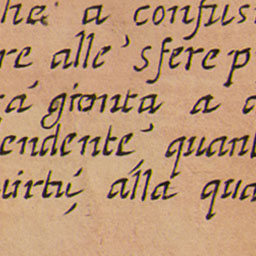 he' a confusi
re alle' sfere p
rá gionta a c
endente', quant
uirtù, alla qua